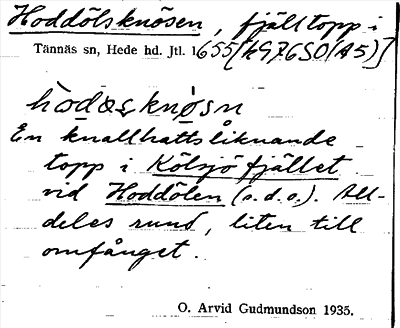 Hoddölsknösen, fjälltopp i
Tännäs sn, Hede hd. Jtl. 1655[k976SO(A5)]
hòdœsknøsn
En knallhattsliknande
topp i Kölsjöfjället
vid Hoddölen (s.d.o.). All-
deles rund, liten till
omfånget.
O. Arvid Gudmundson 1935.